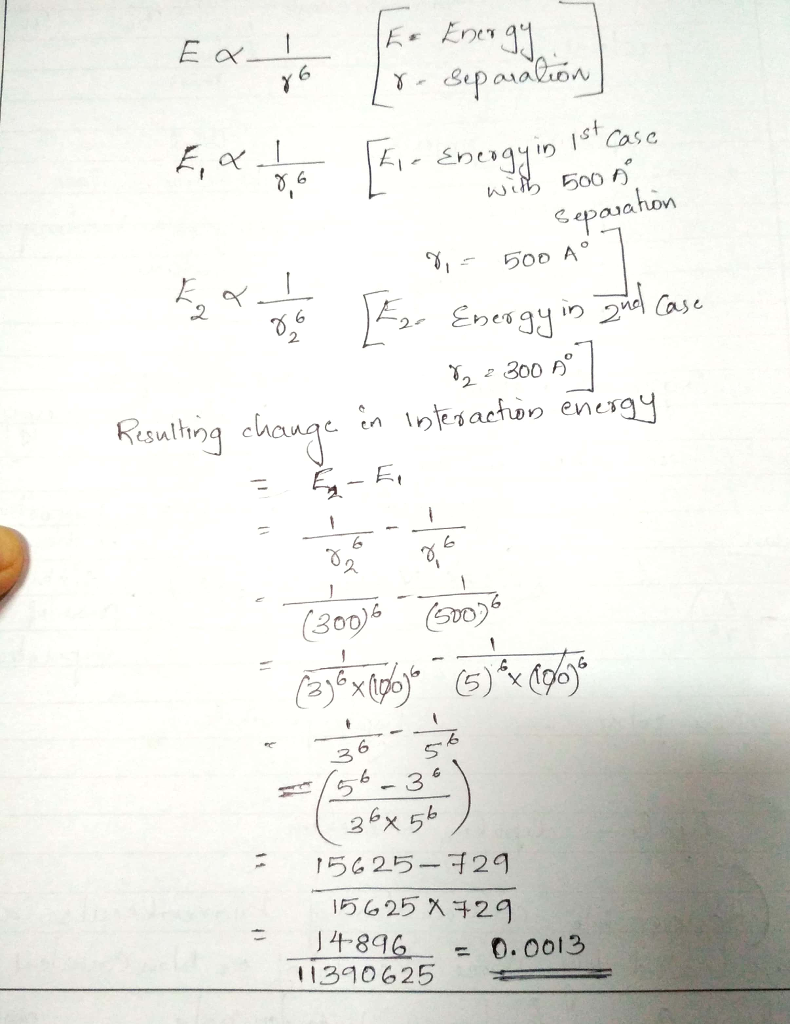 E ∝ 1/r^6 [E = Energy
r - separation]
E₁ ∝ 1/r₁^6 [E₁ - Energy in 1st case
with 500 A°
separation
r₁ = 500 A°]
E₂ ∝ 1/r₂^6 [E₂ - Energy in 2nd case
r₂ = 300 A°]
Resulting change in interaction energy
= E₂ - E₁
= 1/r₂^6 - 1/r₁^6
= 1/(300)^6 - 1/(500)^6
= 1/((3)^6 x (100)^6) - 1/((5)^6 x (100)^6)
= 1/3^6 - 1/5^6
= ((5^6 - 3^6)/(3^6 x 5^6))
= (15625 - 729)/(15625 x 729)
= 14896/11390625 = 0.0013